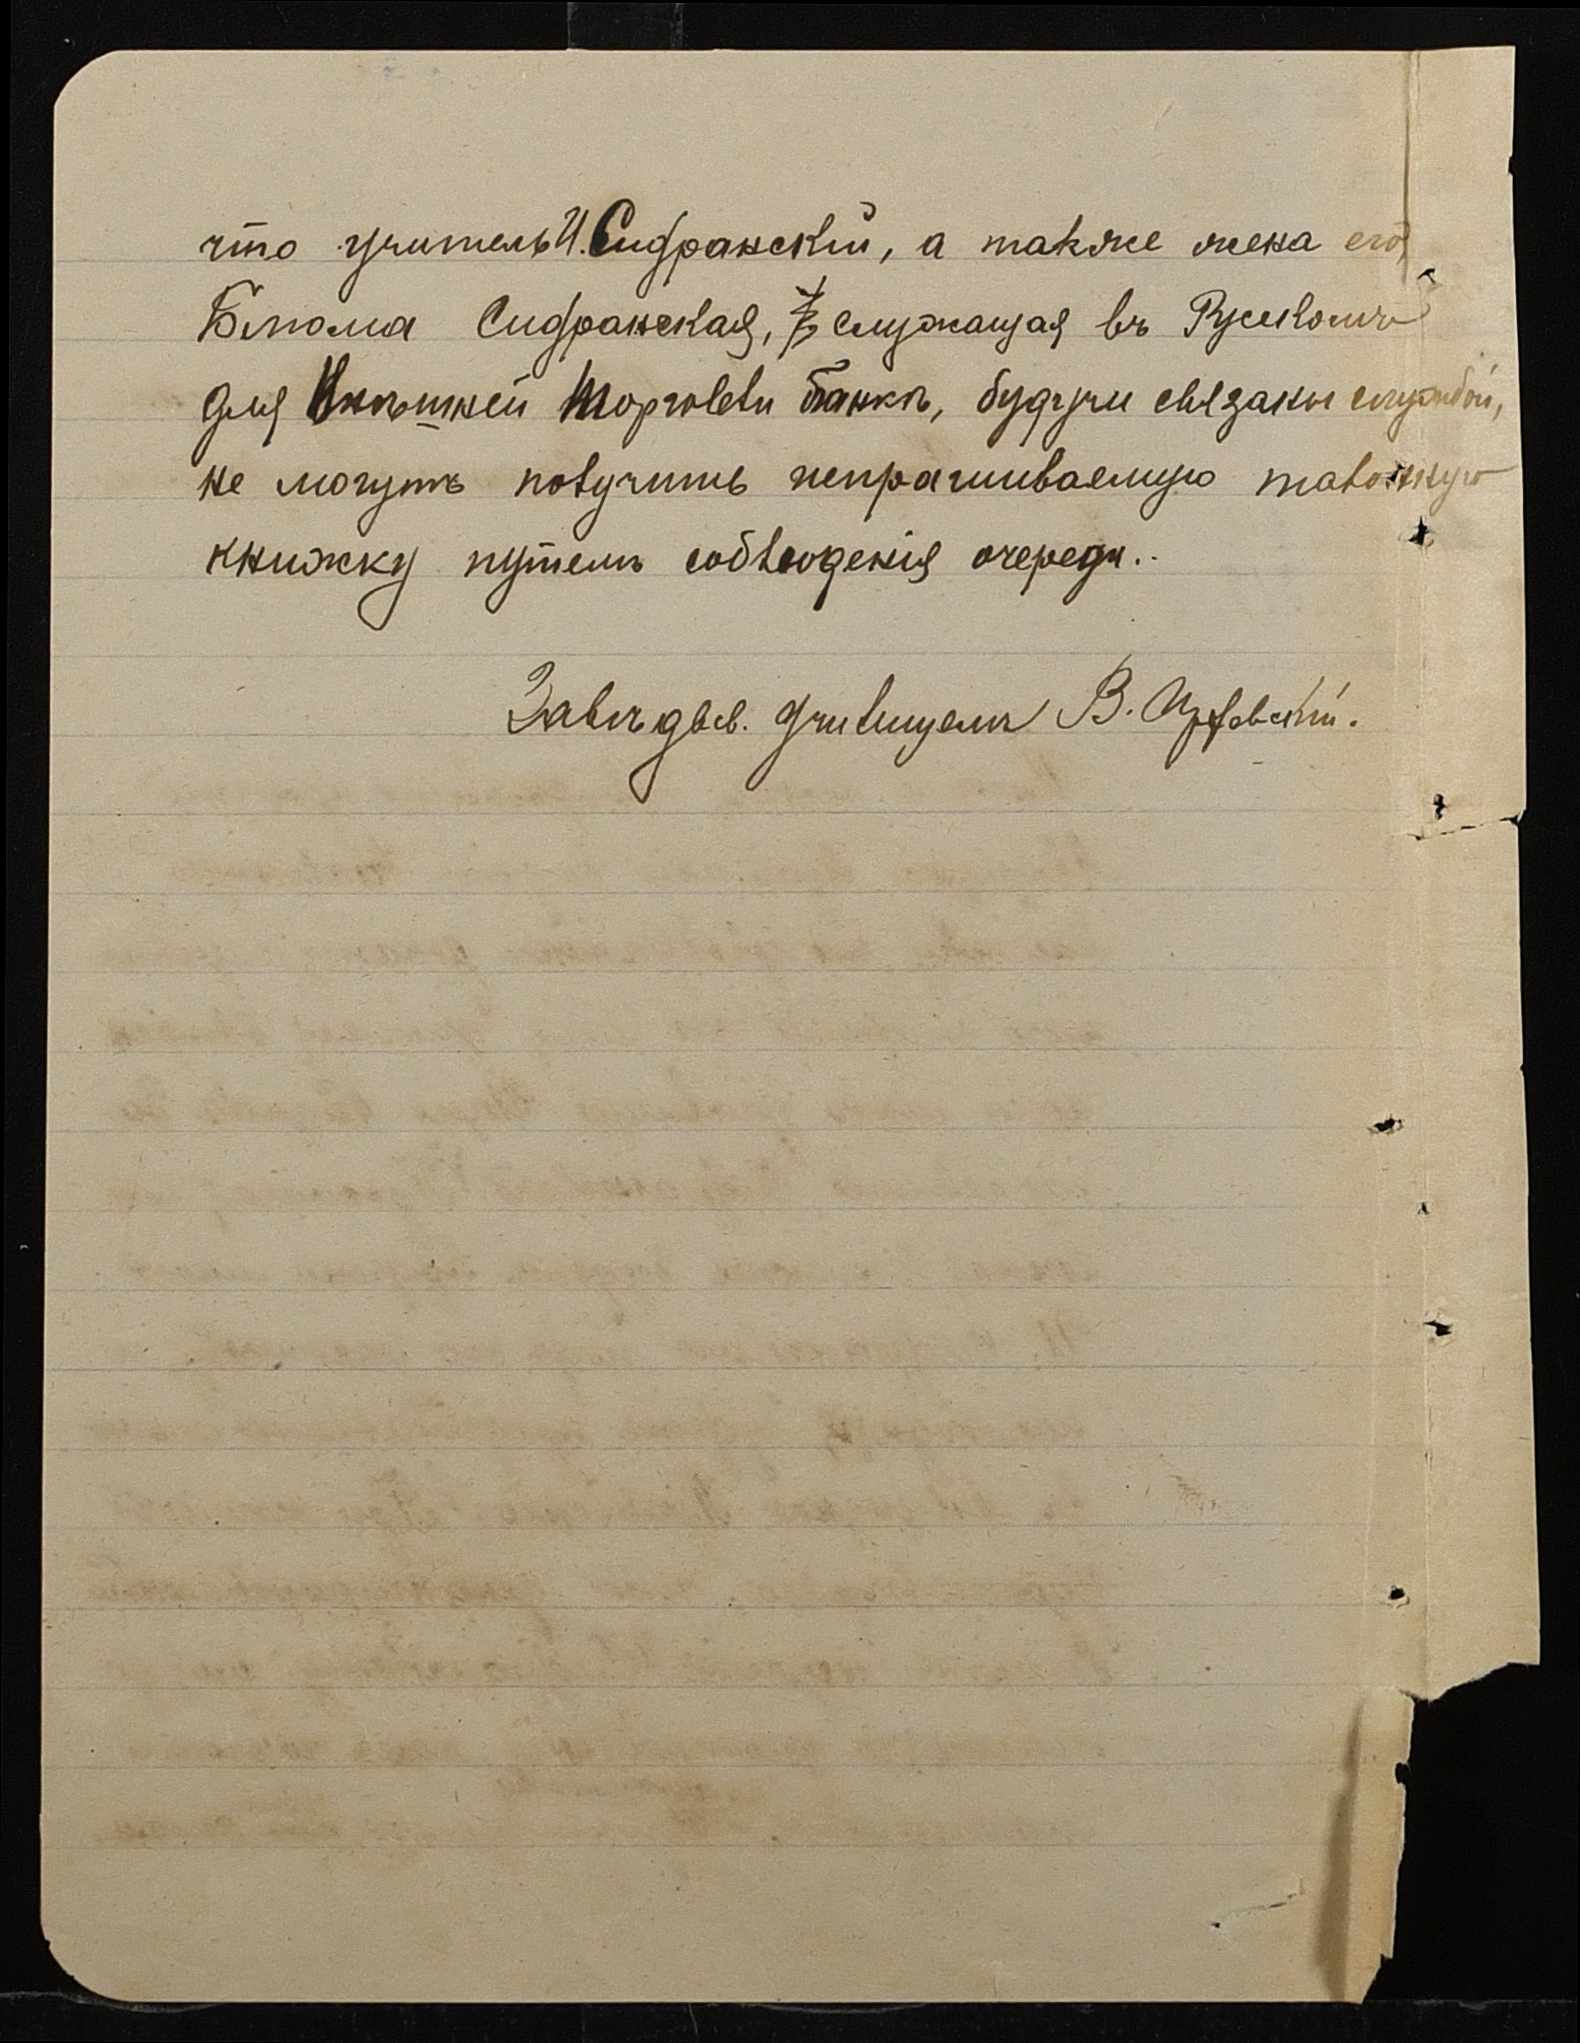 что учитель И. Сидранскій, а также жена его,
Блюма Сидранская, служащая въ Русскомъ
для Внѣшней Торговли Банкѣ, будучи связаны службой,
не могутъ получить испрашиваемую талонную
книжку путемъ соблюденія очереди.
Завѣдыв. училищемъ В.